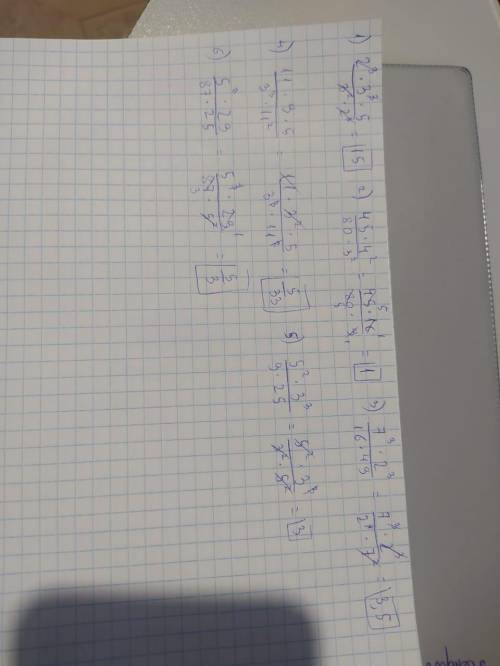 1) 2³ · 3² · 5 / 3 · 2³ = 15 2) 45 · 4² / 80 · 3² = 45 · 16 / 80 · 9 = 1 3) 7³ · 2³ / 16 · 49 = 7³ · 2³ / 2⁴ · 7² = 3,5
4) 11 · 9 · 5 / 3³ · 11² = 11 · 3² · 5 / 3³ · 11² = 5/33 5) 5² · 3³ / 9 · 25 = 5² · 3³ / 3² · 5² = 3
6) 5³ · 29 / 87 · 25 = 5³ · 29 / 87 · 5² = 5/3